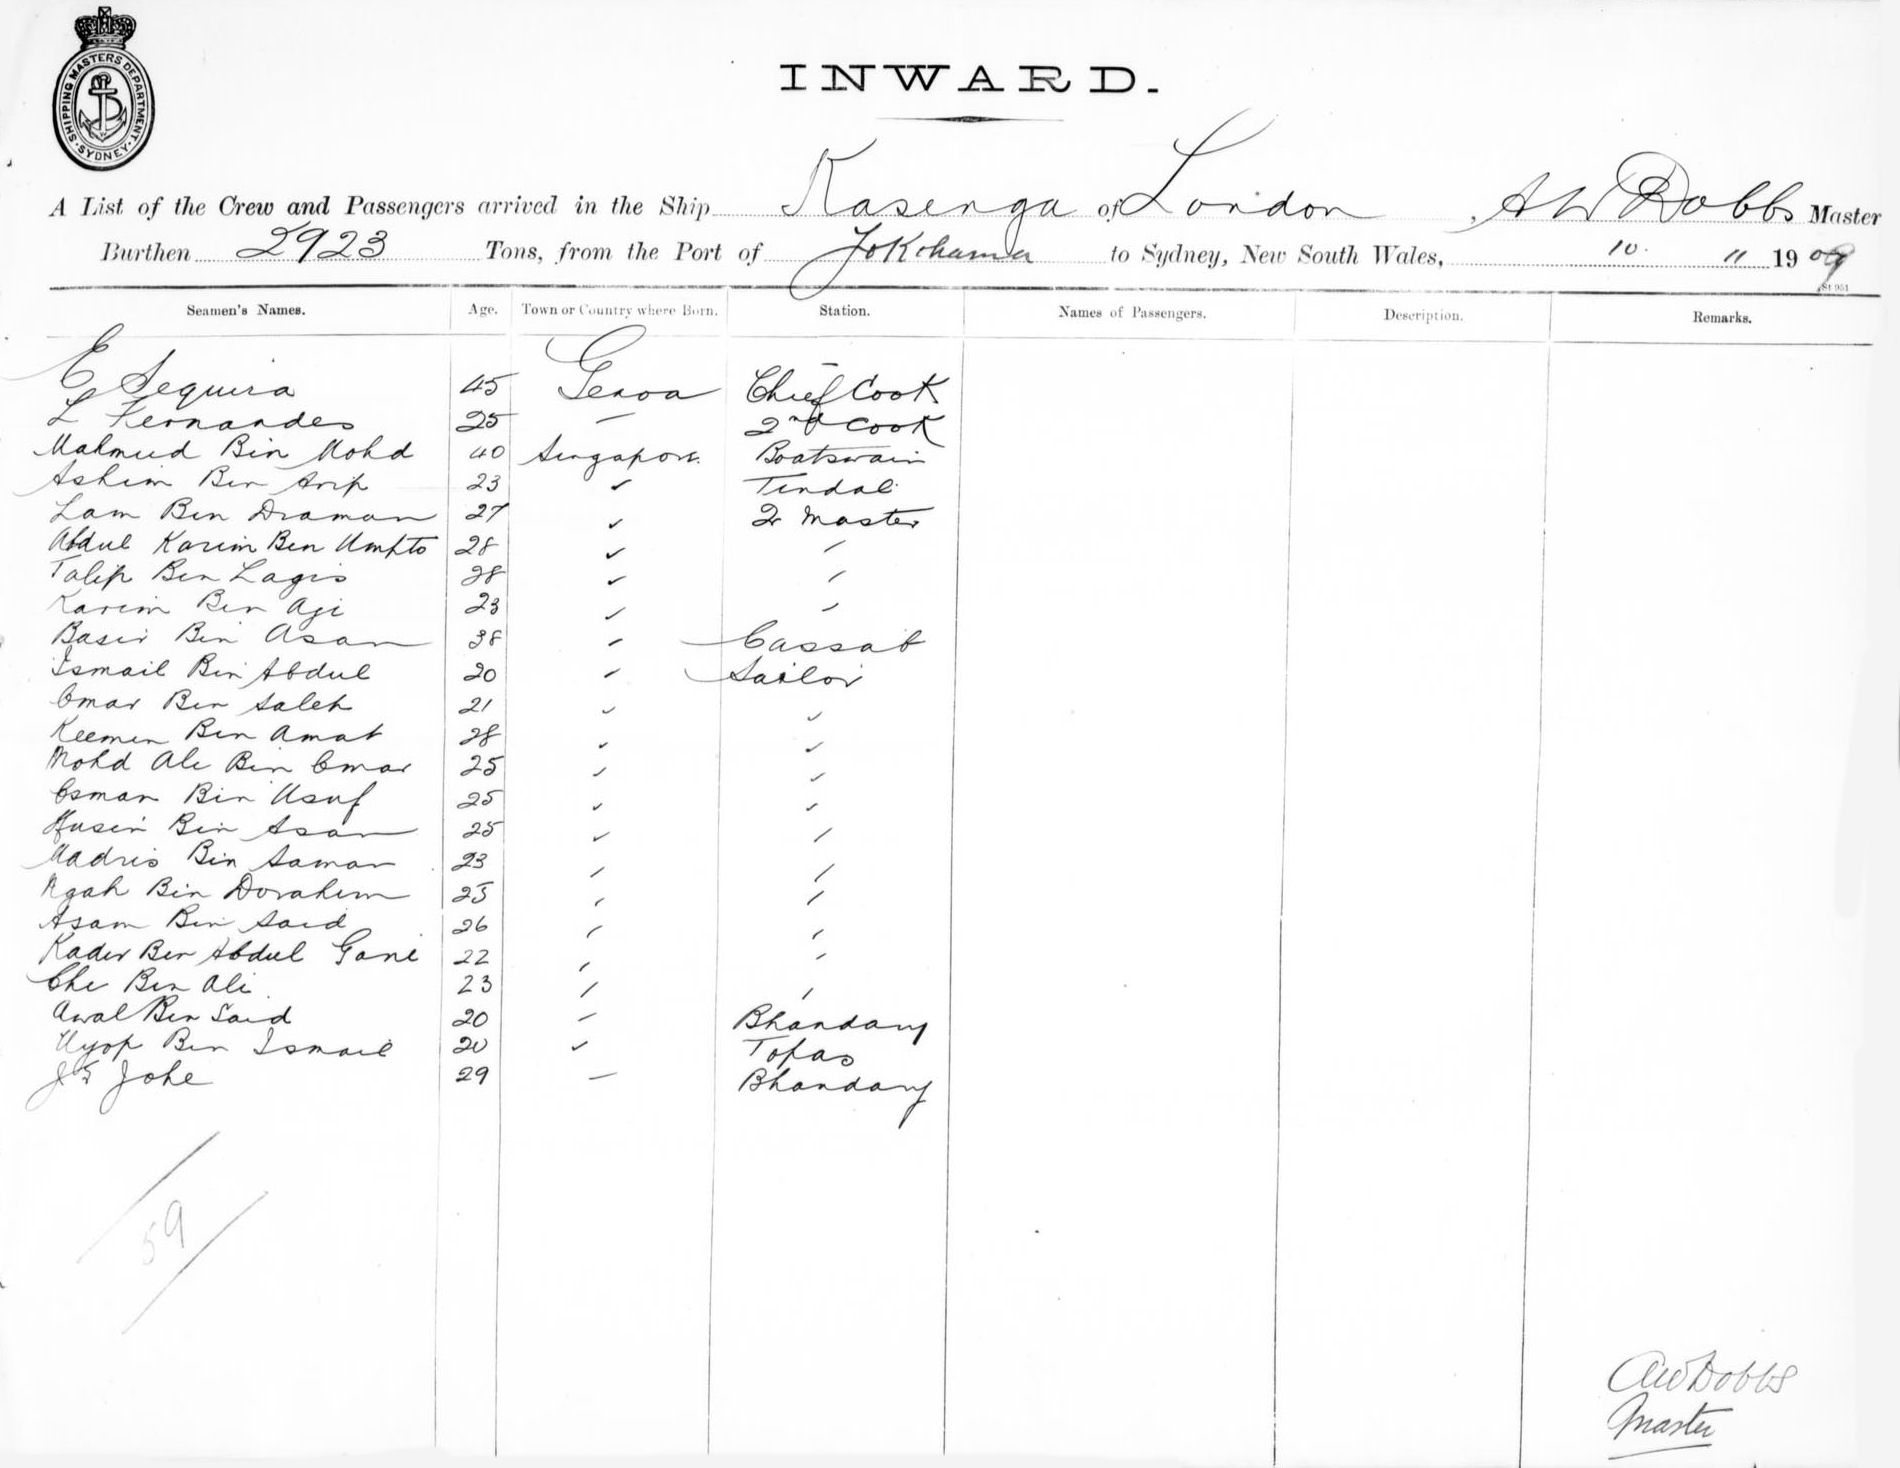 SHIPPING MASTERS DEPARTMENT. SYDNEY.
INWARD.
A List of the Crew and Passengers arrived in the Ship Kasenga of London, A W Dobbs Master
Burthen 2923 Tons, from the Port of Yokohama to Sydney, New South Wales, 10. 11 1909
St 951
Seamen's Names. Age. Town or Country where Born. Station. Names of Passengers. Description. Remarks.
E Sequira 45 Genoa Chief Cook
L Fernandes 25 — 2nd Cook
Mahmud Bin Mohd 40 Singapore. Boatswain
Ashim Bin Arip 23 ✓ Tindal
Lam Bin Draman 27 ✓ Qr Master
Abdul Karim Bin Umpto 28 ✓ ✓
Talip Bin Lagis 28 ✓ ✓
Karim Bin Agi 23 ✓ ✓
Basir Bin Asan 38 ✓ Cassab
Ismail Bin Abdul 20 ✓ Sailor
Omar Bin Saleh 21 ✓ ✓
Keemen Bin Amat 28 ✓ ✓
Mohd Ali Bin Omar 25 ✓ ✓
Osman Bin Usuf 25 ✓ ✓
Husin Bin Asan 25 ✓ ✓
Madris Bin Saman 23 ✓ ✓
Ngah Bin Dorahim 25 ✓ ✓
Asam Bin Said 26 ✓ ✓
Kader Bin Abdul Gani 22 ✓ ✓
Che Bin Ali 23 ✓ ✓
Awal Bin Said 20 — Bhandary
Uyop Bin Ismail 20 ✓ Topas
Johe 29 — Bhandary
59
AW Dobbs
Master